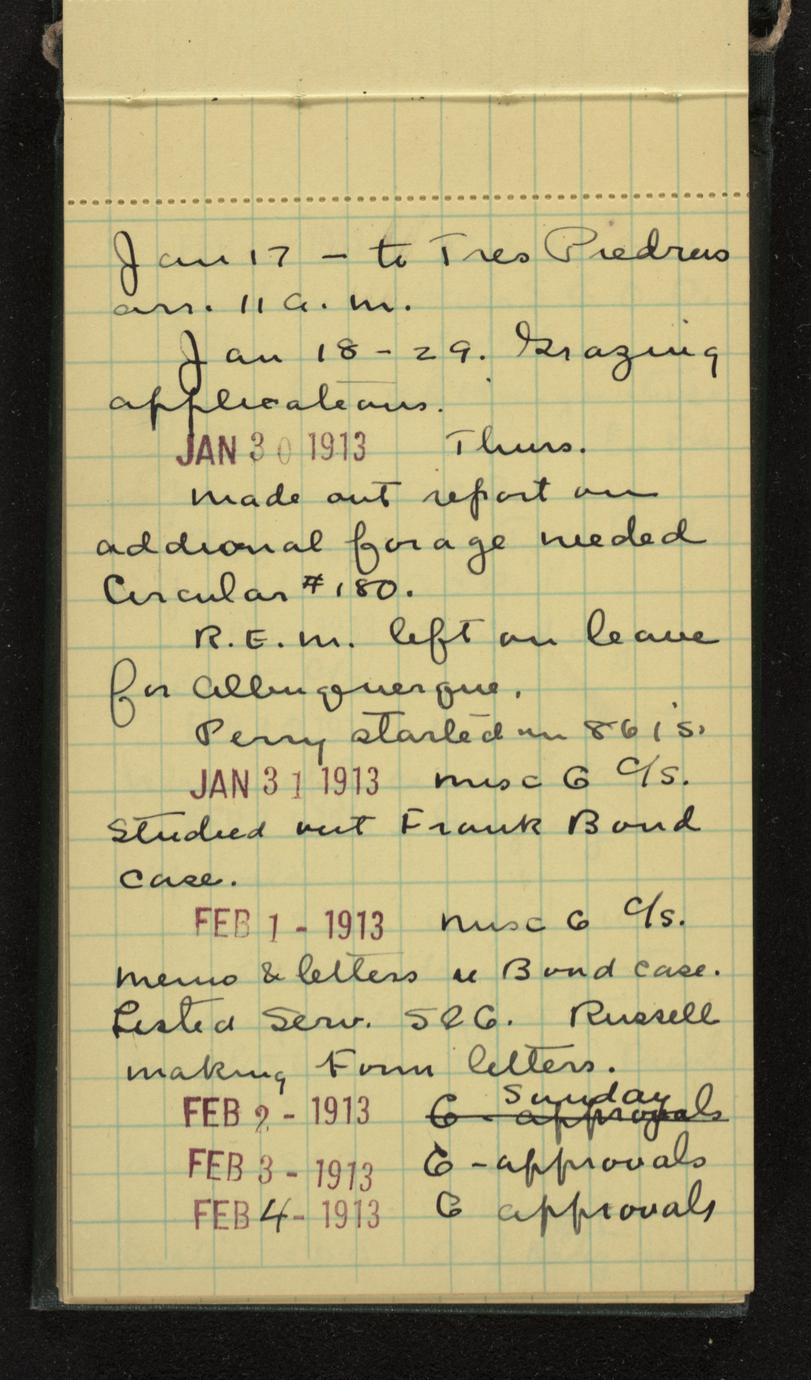 Jan 17 - to Tres Piedras
arr. 11 a.m.
Jan 18-29. Grazing
applications.
JAN 30 1913 Thurs.
Made out report on
addional forage needed
Circular #180.
R.E.M. left on leave
for Albuquerque.
Perry started on 861's.
JAN 31 1913 Misc G C/S.
Studied out Frank Bond
case.
FEB 1 - 1913 Misc G C/S.
Memo & letters re Bond case.
Listed Serv. S&G. Russell
making Form letters.
Sunday
FEB 2 - 1913 G - approvals
FEB 3 - 1913 G - approvals
FEB 4 - 1913 G approvals